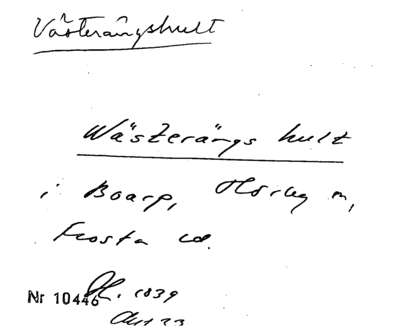 Västerängshult
Wästerängs hult
i Boarp, Hörby m,
Frosta hd.
Nr 10446 1839
Akt 23